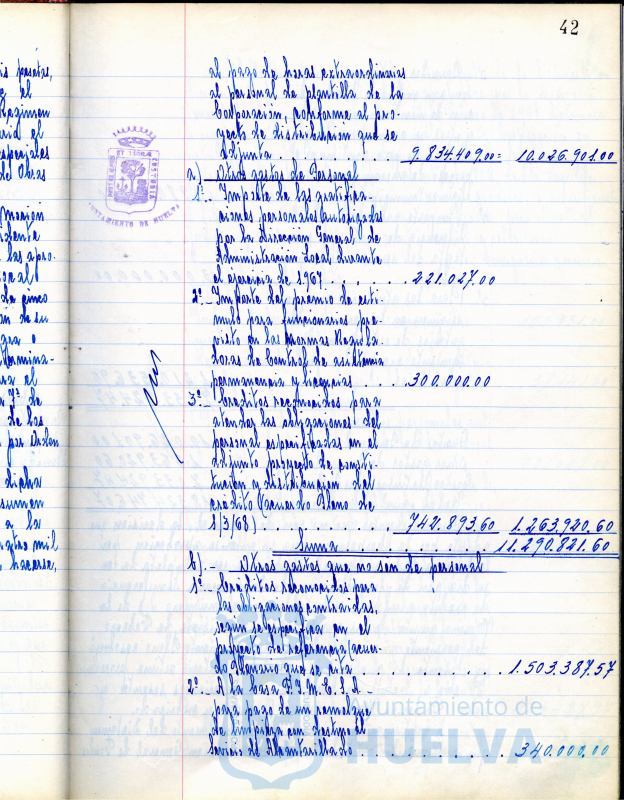 42
is pesetas,
el
Regimen
el
especiales
del Obras
a las apro-
local
de cinco
de su
a el
de los
por Orden
dicha
sumen
a la
hacerse,
al pago de horas extraordinarias
al personal de plantilla de la
Corporación, conforme al pro-
yecto de distribución que se
adjunta . . . . . . . . . . 9.834.409.00= 10.026.901.00
a) Otros gastos de Personal
1º- Importe de las gratifica-
ciones personales autorizadas
por la Dirección General de
Administración Local durante
el ejercicio de 1967 . . . . . . 221.027.00
2º- Importe del premio de estí-
mulo para funcionarios pre-
visto en las normas Regula-
doras de Control de asistencia
permanencia y licencias . . . . 300.000.00
3º- Créditos reconocidos para
atender las obligaciones del
personal especificadas en el
adjunto proyecto de consti-
tución y distribución del
crédito (acuerdo Pleno de
1/3/68) . . . . . . . . . . 742.893.60 1.263.920.60
Suma . . . . . . . . . . . 11.290.821.60
b).- Otros gastos que no son de personal
1º- Créditos reconocidos para
las obligaciones contraidas,
según se especifica en el
proyecto de referencia (acuer-
do Plenario que se cita . . . . . . . . . . 1.503.387.57
2º.- A la casa
para pago de un
de limpieza con destino al
Servicio de Alcantarillado . . . . . . . . . . 340.000.00
AYUNTAMIENTO DE HUELVA
Ayuntamiento de
HUELVA